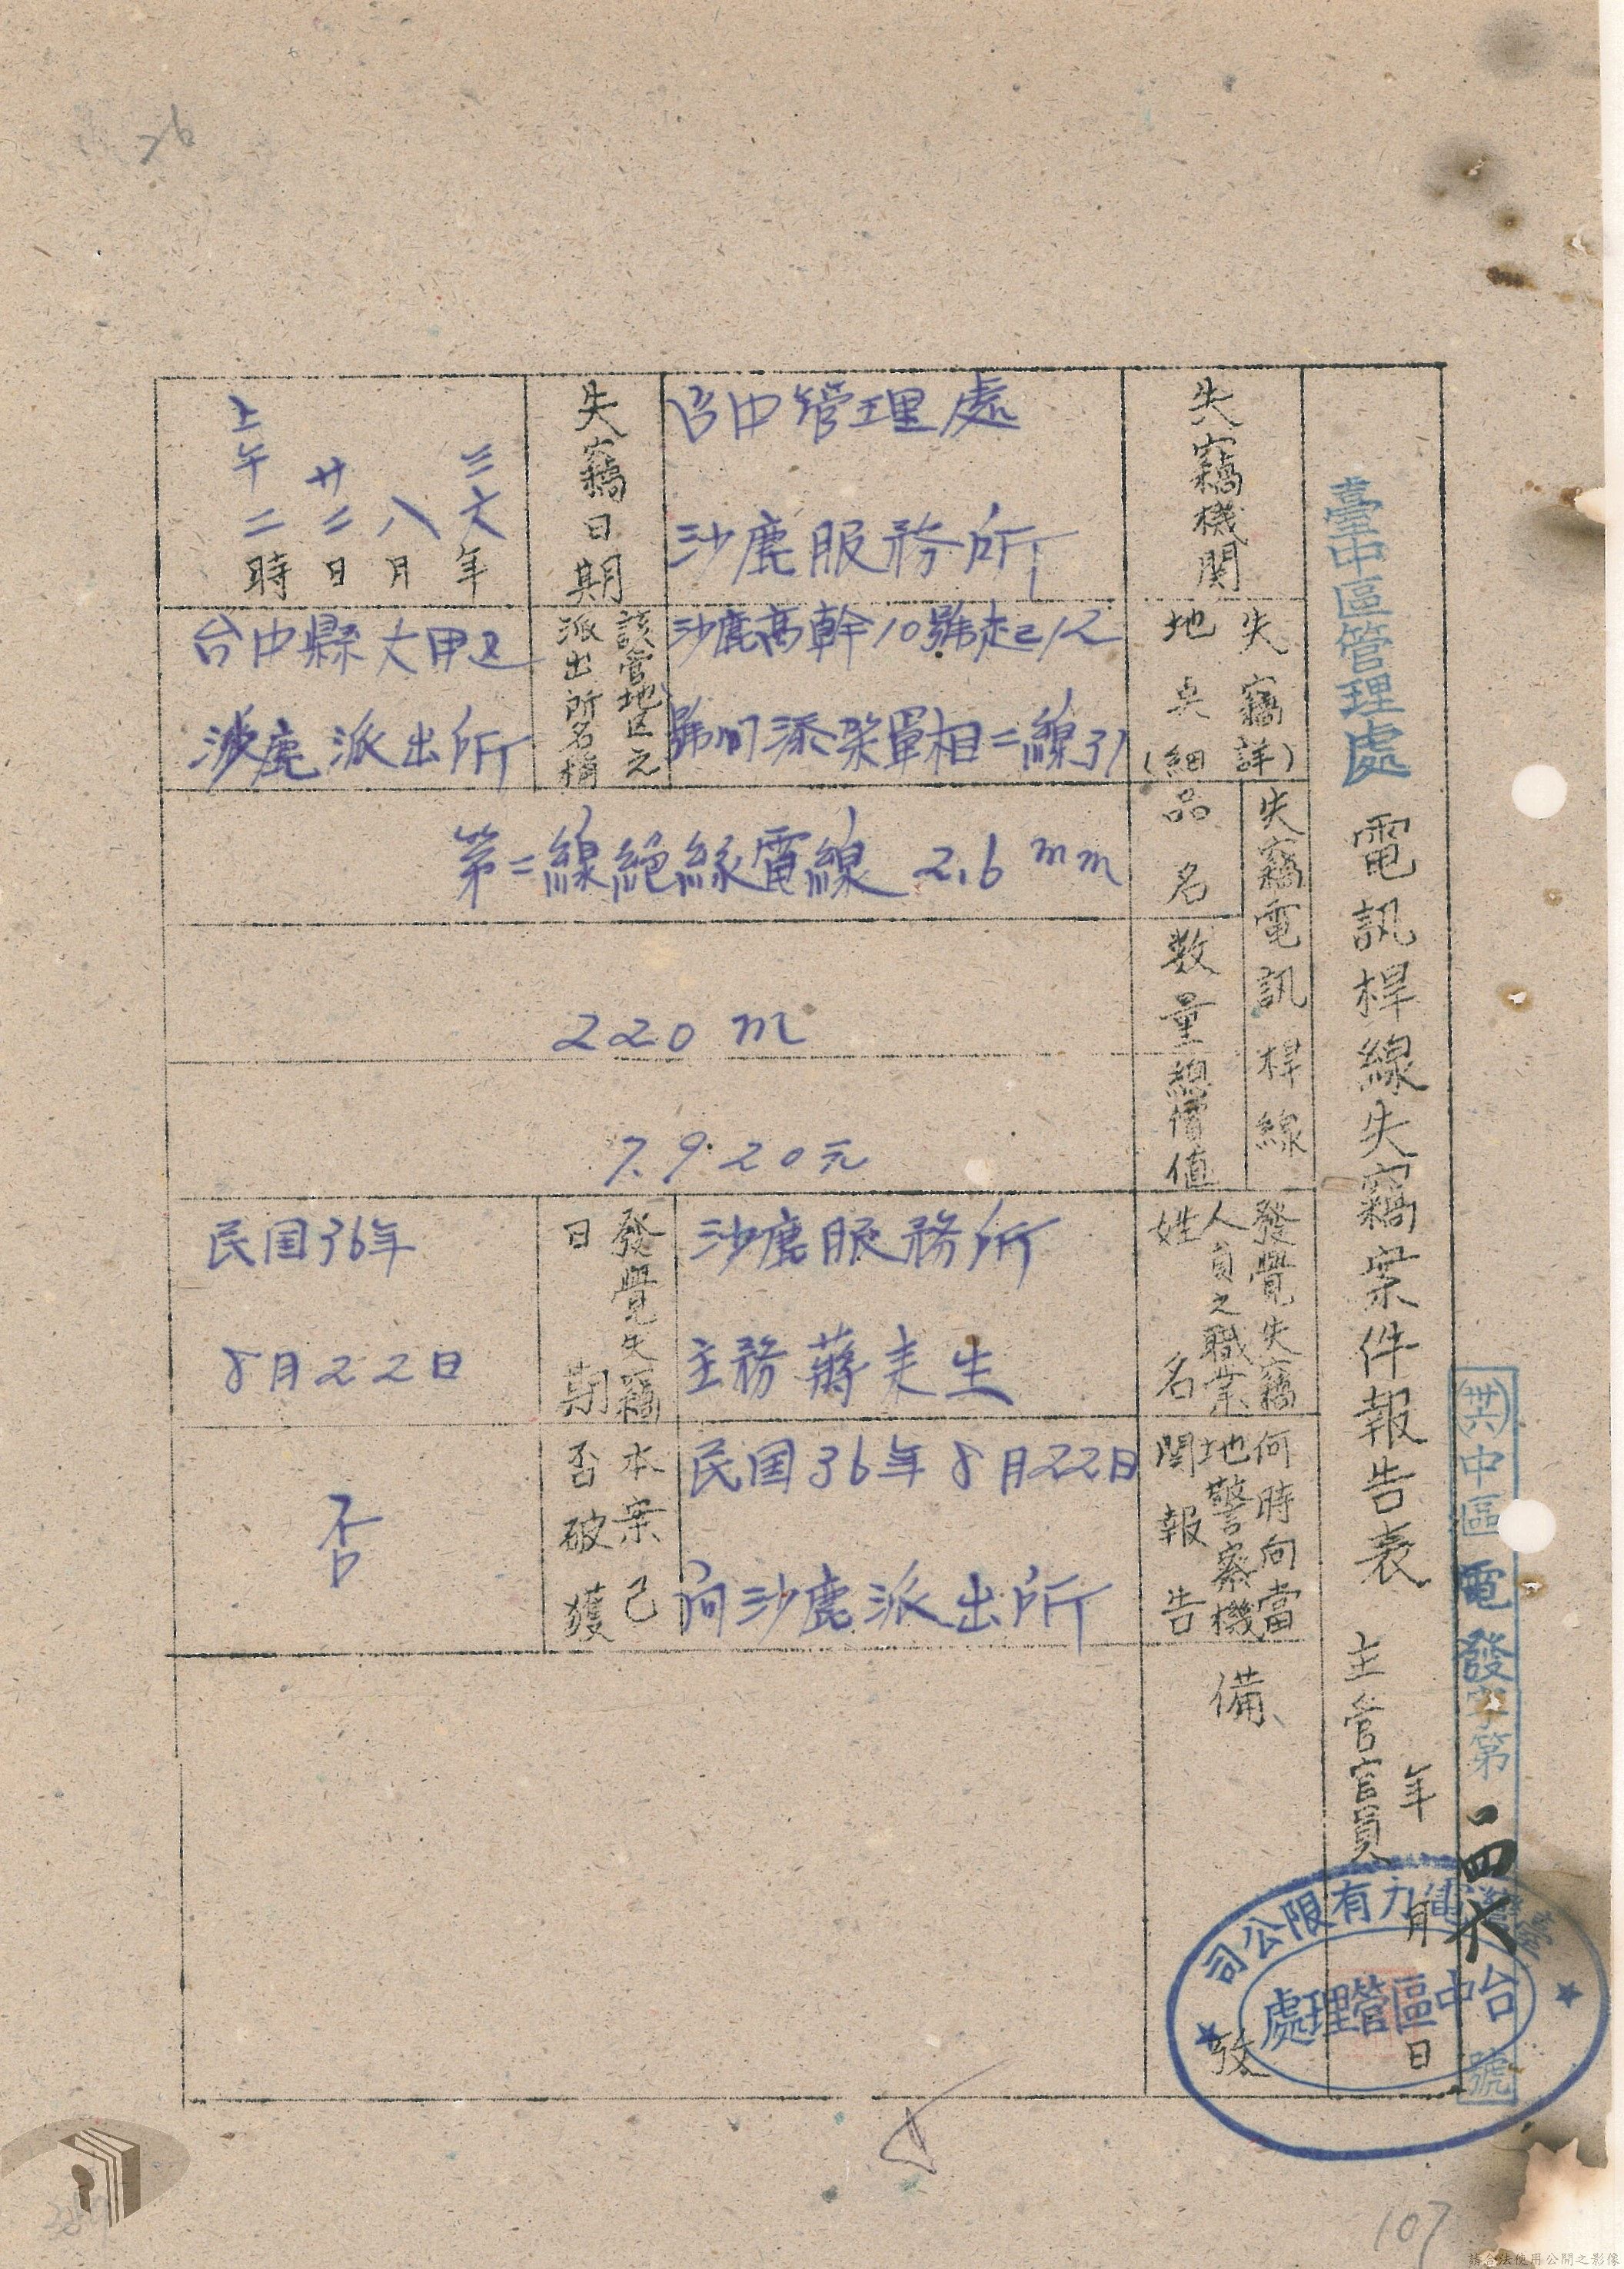 26
臺中區管理處 電訊桿線失竊案件報告表
主管官員
年 月 日
(卅六)中區電發字第一四六號
臺灣電力有限公司
台中區管理處
失竊機関
台中管理處
沙鹿服務所
失竊日期
三六年
八月
廿二日
上午二時
失竊地点(詳細)
沙鹿高幹10號起12
號間添架單相二線引
該管地区之派出所名稱
台中縣大甲区
沙鹿派出所
失竊電訊桿線
品名
第二線絕緣電線 2.6mm
数量
220m
總價值
7.920元
發覺失竊人員之職業姓名
沙鹿服務所
主務蔣耒生
發覺失竊日期
民国36年
8月22日
何時向當地警察機関報告
民国36年8月22日
向沙鹿派出所
本案已否破獲
否
備、攷
107
請合法使用公開之影像